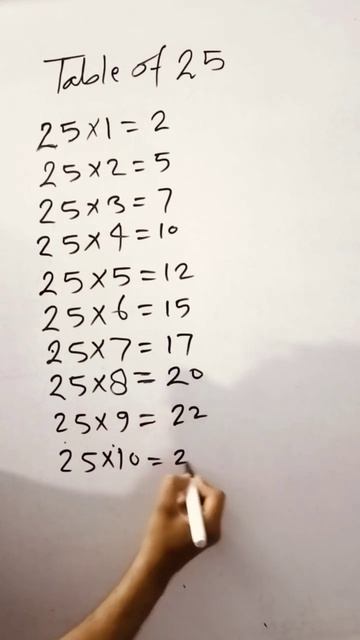 Table of 25
25×1=2
25×2=5
25×3=7
25×4=10
25×5=12
25×6=15
25×7=17
25×8=20
25×9=22
25×10=2